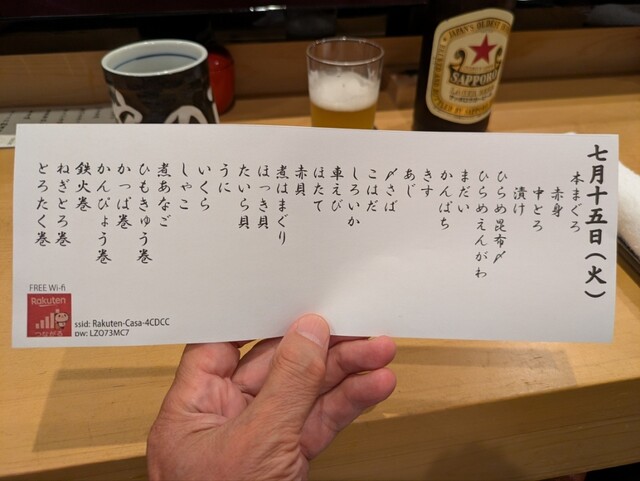 七月十五日(火)
本まぐろ
赤身
中とろ
漬け
ひらめ昆布〆
ひらめえんがわ
まだい
かんぱち
きす
あじ
〆さば
こはだ
しろいか
車えび
ほたて
赤貝
煮はまぐり
ほっき貝
たいら貝
うに
いくら
しゃこ
煮あなご
ひもきゅう巻
かっぱ巻
かんぴょう巻
鉄火巻
ねぎとろ巻
とろたく巻
FREE Wi-fi
Rakuten
つながる
ssid: Rakuten-Casa-4CDCC
pw: LZO73MC7
JAPAN'S OLDEST
SAPPORO
LAGER BEER